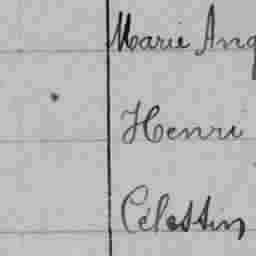 Marie Ang
Henri
Célestin